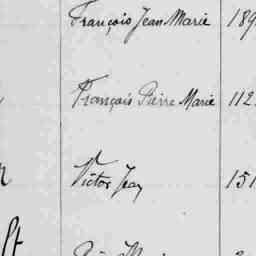 François Jean Marie 189
François Pierre Marie 112
Victor Jean 151